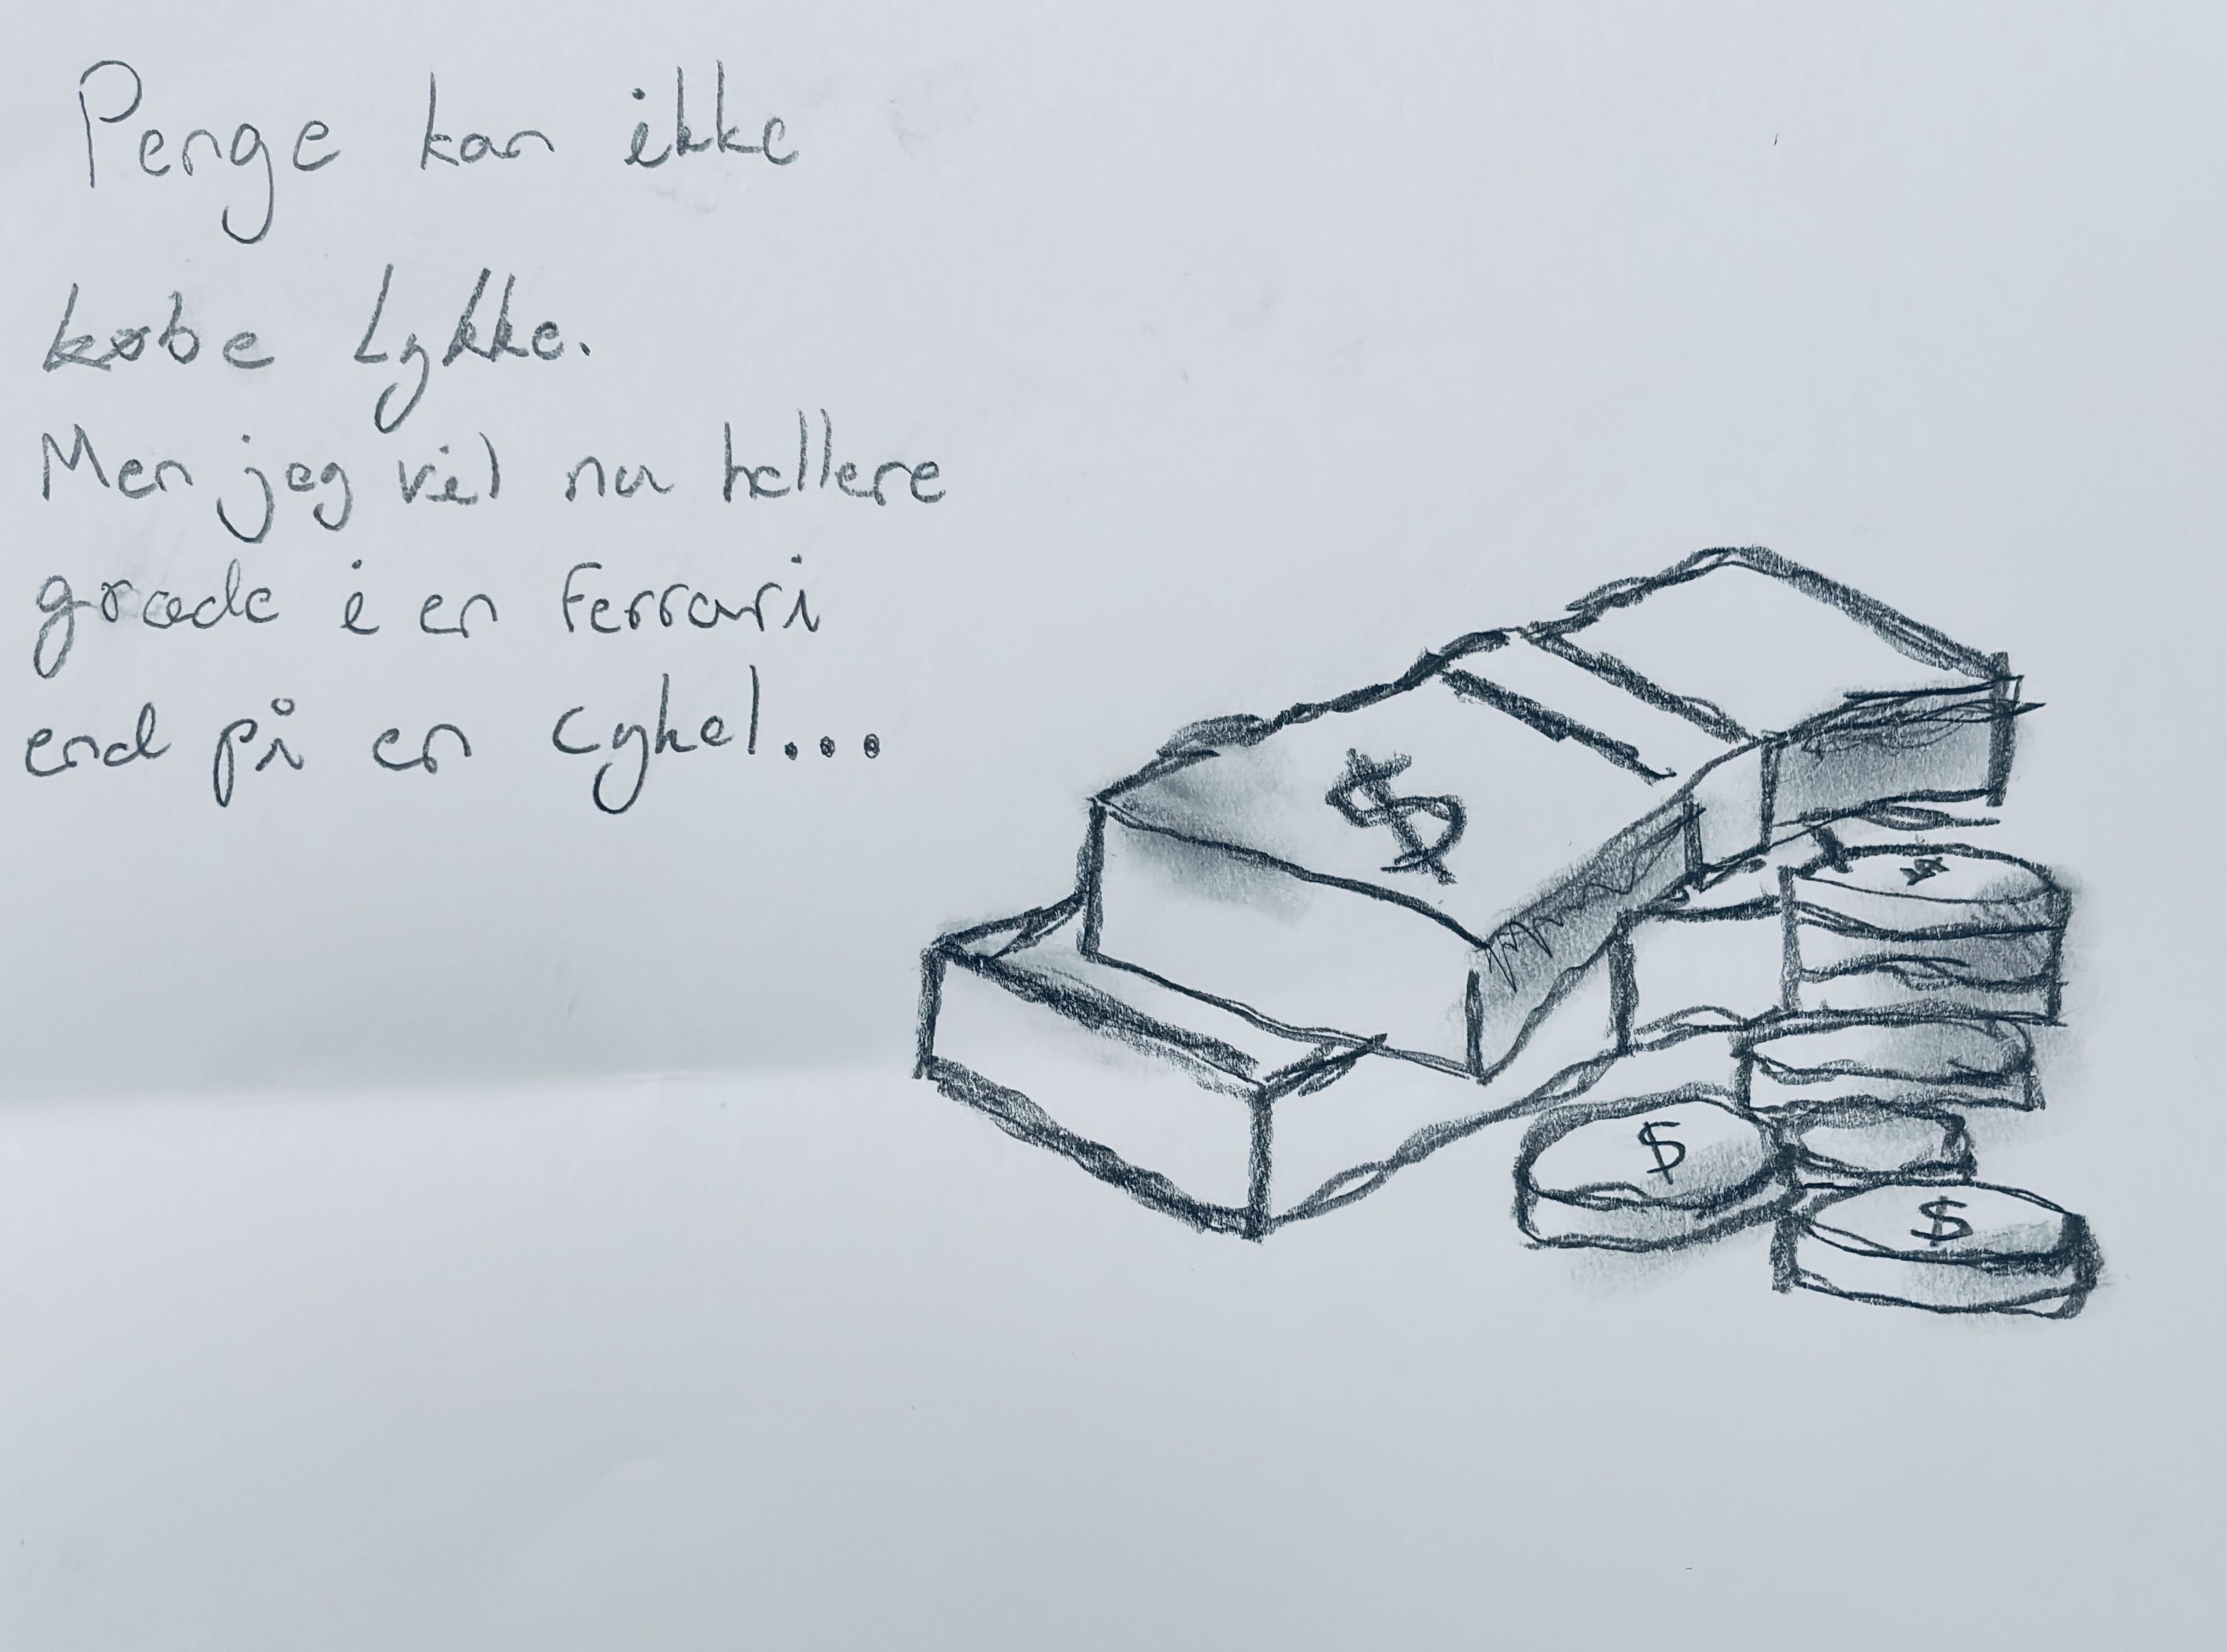 Penge kan ikke
købe Lykke.
Men jeg vil nu hellere
græde i en Ferrari
end på en Cykel...
$
$
$
$